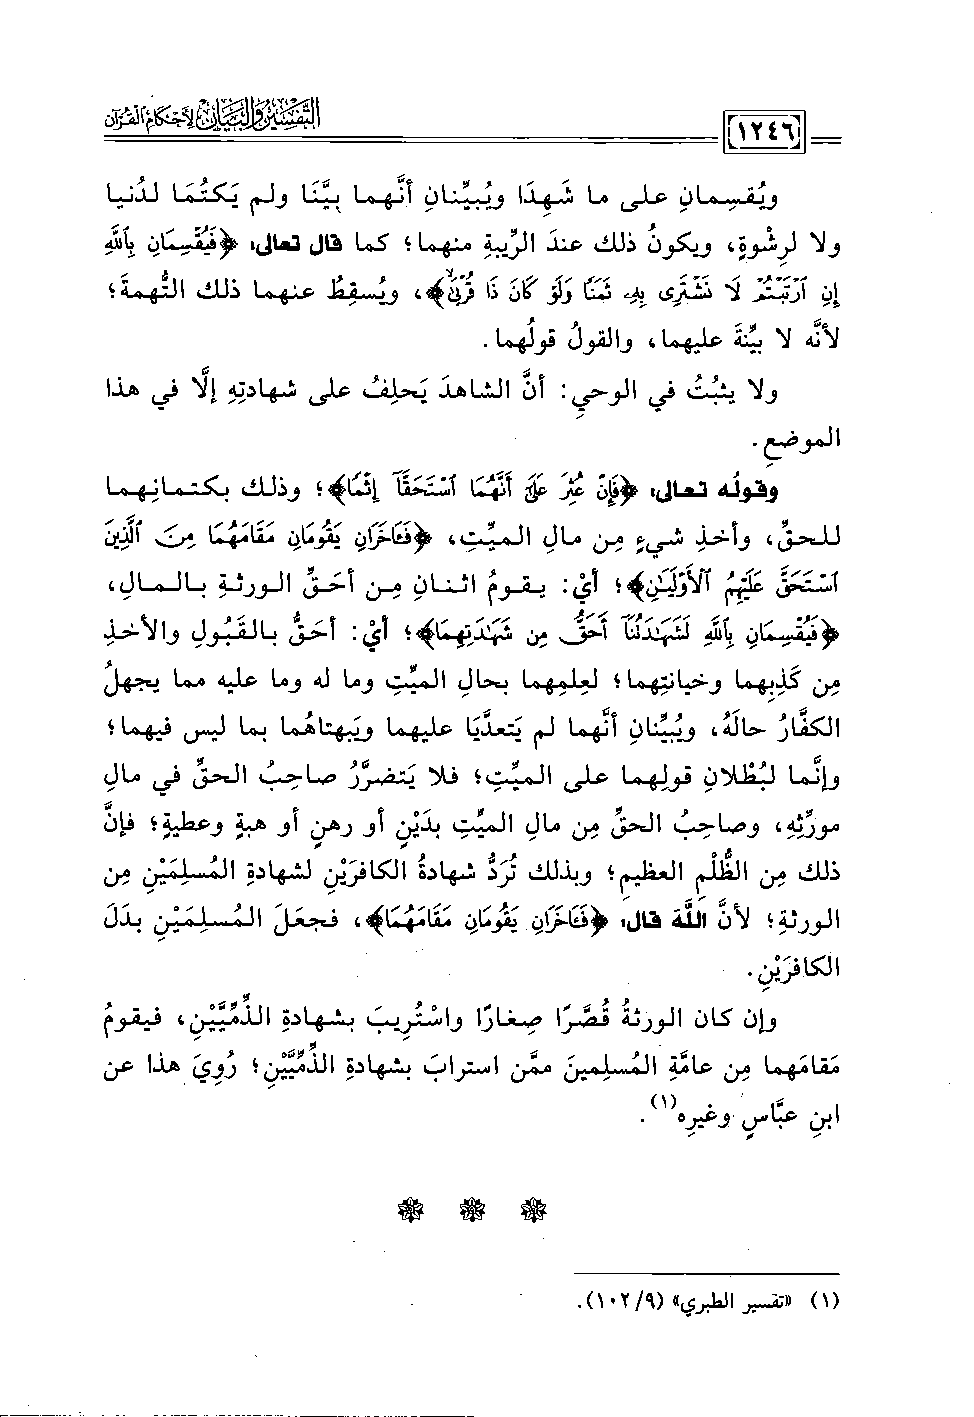 ١٢٤٦
التفسير والبيان لأحكام القرآن
ويُقسِمانِ على ما شَهِدَا ويُبيِّنانِ أنَّهما بيَّنَا ولم يَكتُمَا لدُنيا
ولا لرِشْوةٍ، ويكونُ ذلك عندَ الرِّيبةِ منهما؛ كما قال تعالى: ﴿فَيُقْسِمَانِ بِٱللَّهِ
إِنِ ٱرْتَبْتُمْ لَا نَشْتَرِى بِهِۦ ثَمَنًا وَلَوْ كَانَ ذَا قُرْبَىٰ﴾، ويُسقِطُ عنهما ذلك التُّهمةَ؛
لأنَّه لا بيِّنةَ عليهما، والقولُ قولُهما.
ولا يثبُتُ في الوحيِ: أنَّ الشاهدَ يَحلِفُ على شهادتِهِ إلَّا في هذا
الموضعِ.
وقولُه تعالى: ﴿فَإِنْ عُثِرَ عَلَىٰٓ أَنَّهُمَا ٱسْتَحَقَّآ إِثْمًا﴾؛ وذلك بكتمانِهما
للحقِّ، وأخذِ شيءٍ مِن مالِ الميِّتِ، ﴿فَـَٔاخَرَانِ يَقُومَانِ مَقَامَهُمَا مِنَ ٱلَّذِينَ
ٱسْتَحَقَّ عَلَيْهِمُ ٱلْأَوْلَيَـٰنِ﴾؛ أيْ: يقومُ اثنانِ مِن أحَقِّ الورثةِ بالمالِ،
﴿فَيُقْسِمَانِ بِٱللَّهِ لَشَهَـٰدَتُنَآ أَحَقُّ مِن شَهَـٰدَتِهِمَا﴾؛ أيْ: أحَقُّ بالقَبُولِ والأخذِ
مِن كَذِبِهما وخيانتِهما؛ لعِلمِهما بحالِ الميِّتِ وما له وما عليه مما يجهلُ
الكفَّارُ حالَهُ، ويُبيِّنانِ أنَّهما لم يَتعدَّيَا عليهما ويَبهتاهُما بما ليس فيهما؛
وإنَّما لبُطْلانِ قولِهما على الميِّتِ؛ فلا يَتضرَّرُ صاحبُ الحقِّ في مالِ
مورِّثِهِ، وصاحبُ الحقِّ مِن مالِ الميِّتِ بدَيْنٍ أو رهنٍ أو هبةٍ وعطيةٍ؛ فإنَّ
ذلك مِن الظُّلْمِ العظيمِ؛ وبذلك تُرَدُّ شهادةُ الكافرَيْنِ لشهادةِ المُسلِمَيْنِ مِن
الورثةِ؛ لأنَّ اللَّهَ قال: ﴿فَـَٔاخَرَانِ يَقُومَانِ مَقَامَهُمَا﴾، فجعَلَ المُسلِمَيْنِ بدَلَ
الكافرَيْنِ.
وإن كان الورثةُ قُصَّرًا صِغارًا واسْتُرِيبَ بشهادةِ الذِّمِّيَّيْنِ، فيقومُ
مَقامَهما مِن عامَّةِ المُسلِمينَ ممَّن استرابَ بشهادةِ الذِّمِّيَّيْنِ؛ رُوِيَ هذا عن
ابنِ عبَّاسٍ وغيرِه(١).
(١) «تفسير الطبري» (٩/ ١٠٢).